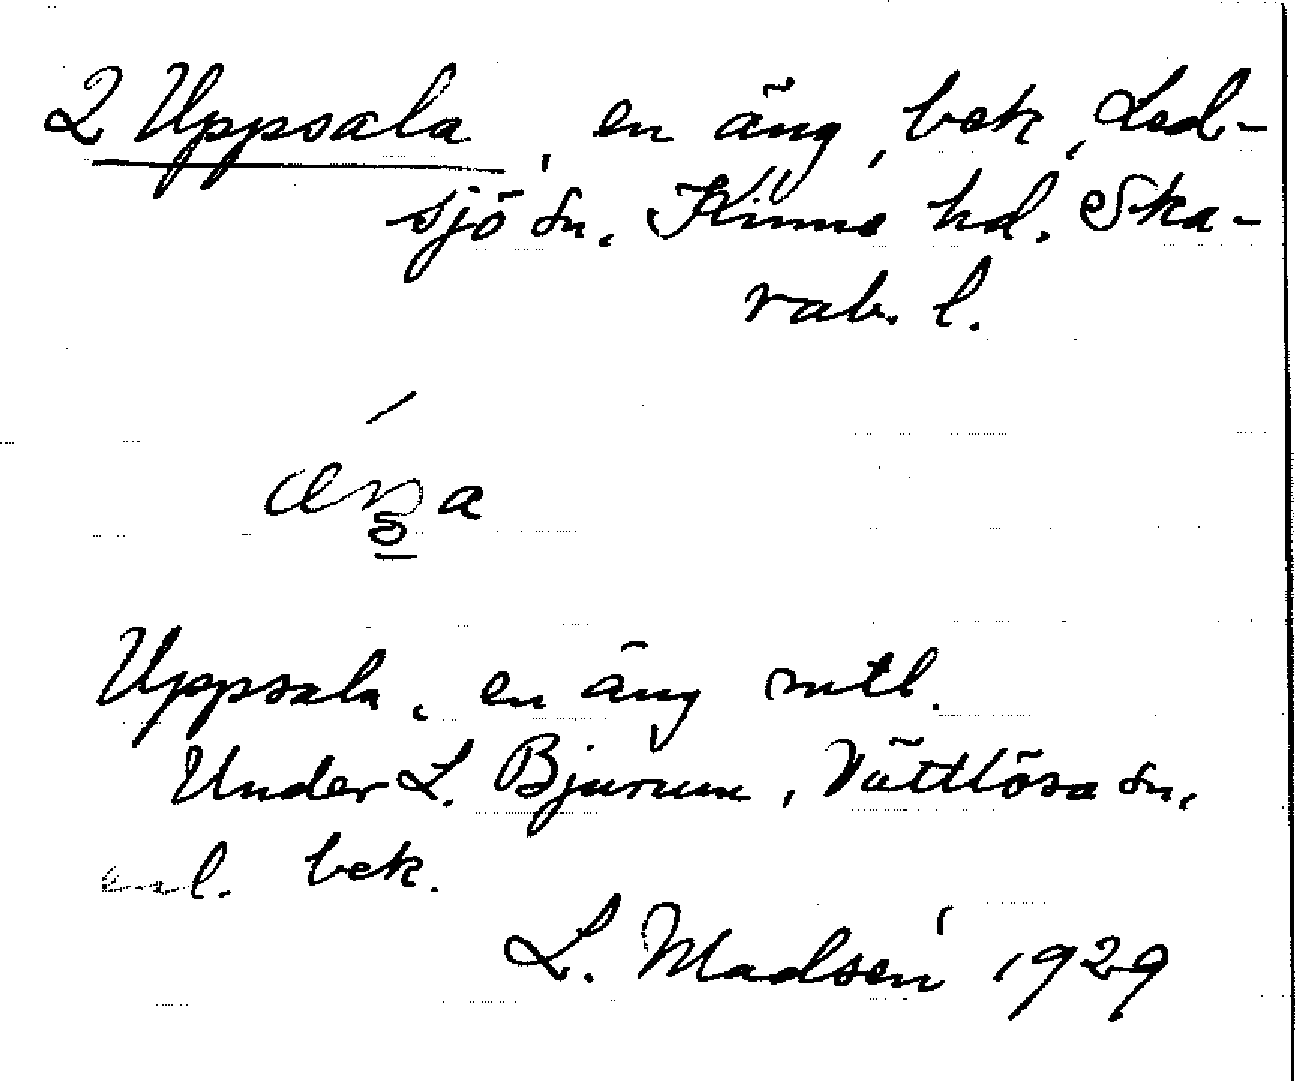 2 Uppsala, en äng, bek, Led-
sjö sn. Kinne hd. Ska-
rab. l.
Uppsala, en äng mtl.
Under L. Bjurum, Vättlösa sn,
enl. bek.
L. Madsén 1929